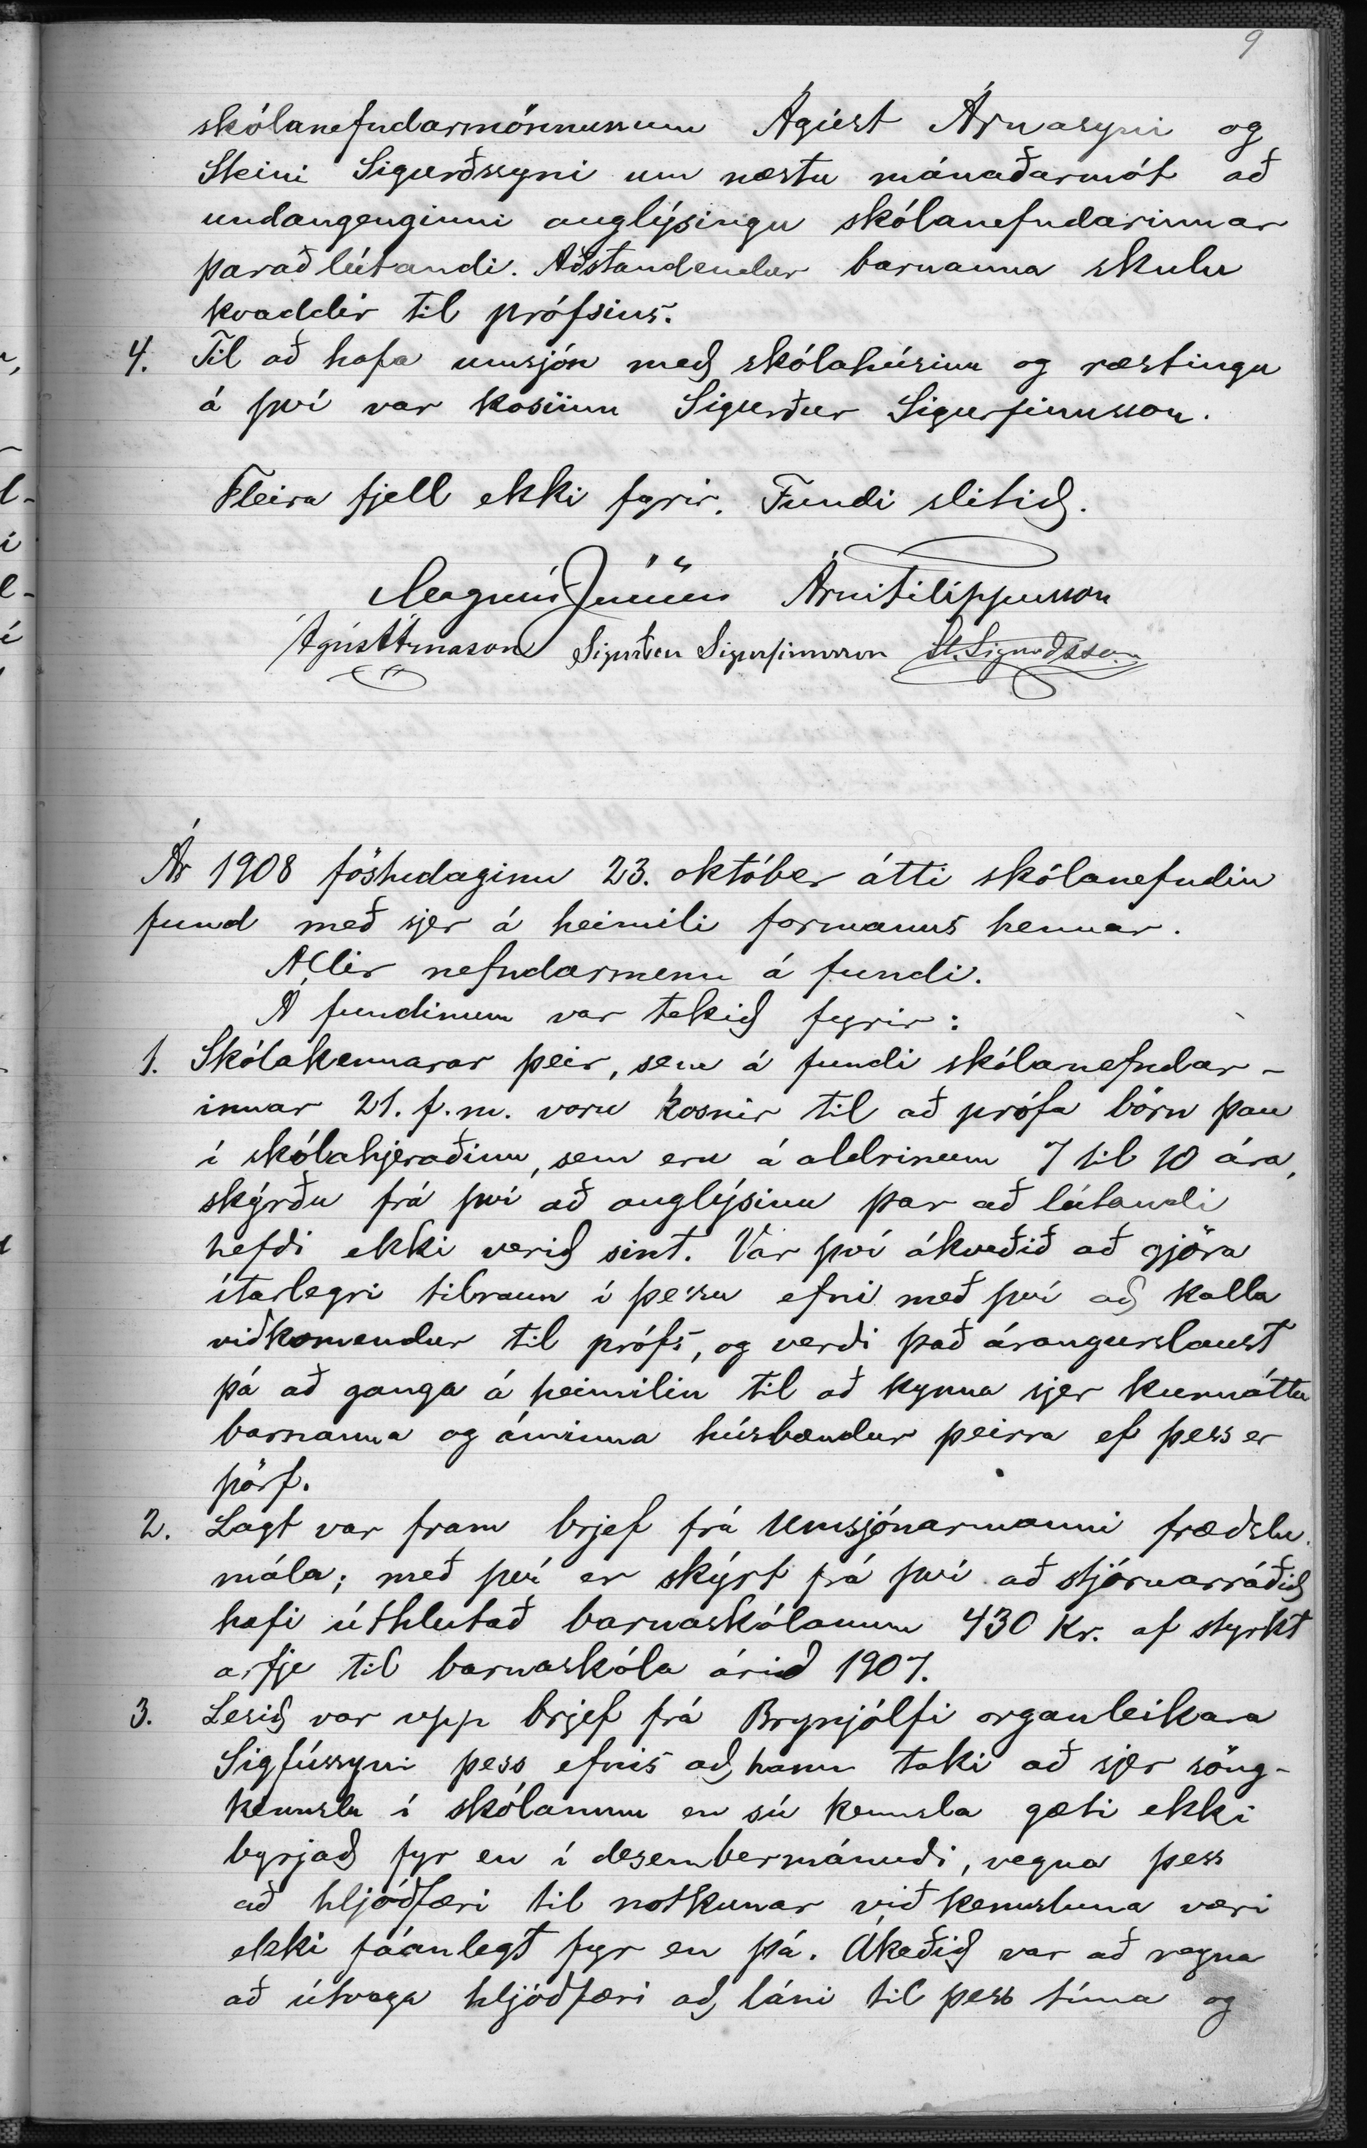 9
skólanefndarmönnunum Ágúst Árnasyni og
Steini Sigurðssyni um næstu mánaðarmót að
undangenginni auglýsingu skólanefndarinnar
þaraðlútandi. Aðstandendur barnanna skulu
kvaddir til prófsins.
4. Til að hafa umsjón með skólahúsinu og ræstingu
á því var kosiinn Sigurður Sigurfinnsson.
Fleira fjell ekki fyrir. Fundi slitið.
Magnús Jónsson Árni Filippusson
Ágúst Árnason Sigurður Sigurfinnsson St. Sigurðsson
Ár 1908 föstudaginn 23. október átti skólanefndin
fund með sjer á heimili formanns hennar.
Allir nefndarmenn á fundi.
Á fundinum var tekið fyrir:
1. Skólakennarar þeir, sem á fundi skólanefndar-
innar 21. f.m. voru kosnir til að prófa börn þau
í skólahjeraðinu, sem eru á aldrinum 7 til 10 ára,
skýrðu frá því að auglýsinu þar að lútandi
hefði ekki verið sint. Var því ákveðið að gjöra
ítarlegri tilraun í þessu efni með því að kalla
viðkomendur til prófs, og verði það árangurslaust
þá að ganga á heimilin til að kynna sjer kunnáttu
barnanna og áminna húsbændur þeirra ef þess er
þörf.
2. Lagt var fram brjef frá Umsjónarmanni fræðslu-
mála; með því er skýrt frá því að stjórnarráðið
hafi úthlutað barnaskólanum 430 kr. af styrkt
arfje til barnaskóla árið 1907.
3. Lesið var upp brjef frá Brynjólfi organleikara
Sigfússyni þess efnis að hann taki að sjer söng-
kennslu í skólanum en sú kennsla gæti ekki
byrjað fyr en í desembermánuði, vegna þess
að hljóðfæri til notkunar við kennsluna væri
ekki fáanlegt fyr en þá. Ákeðið var að reyna
að útvega hljóðfæri að láni til þess tíma og